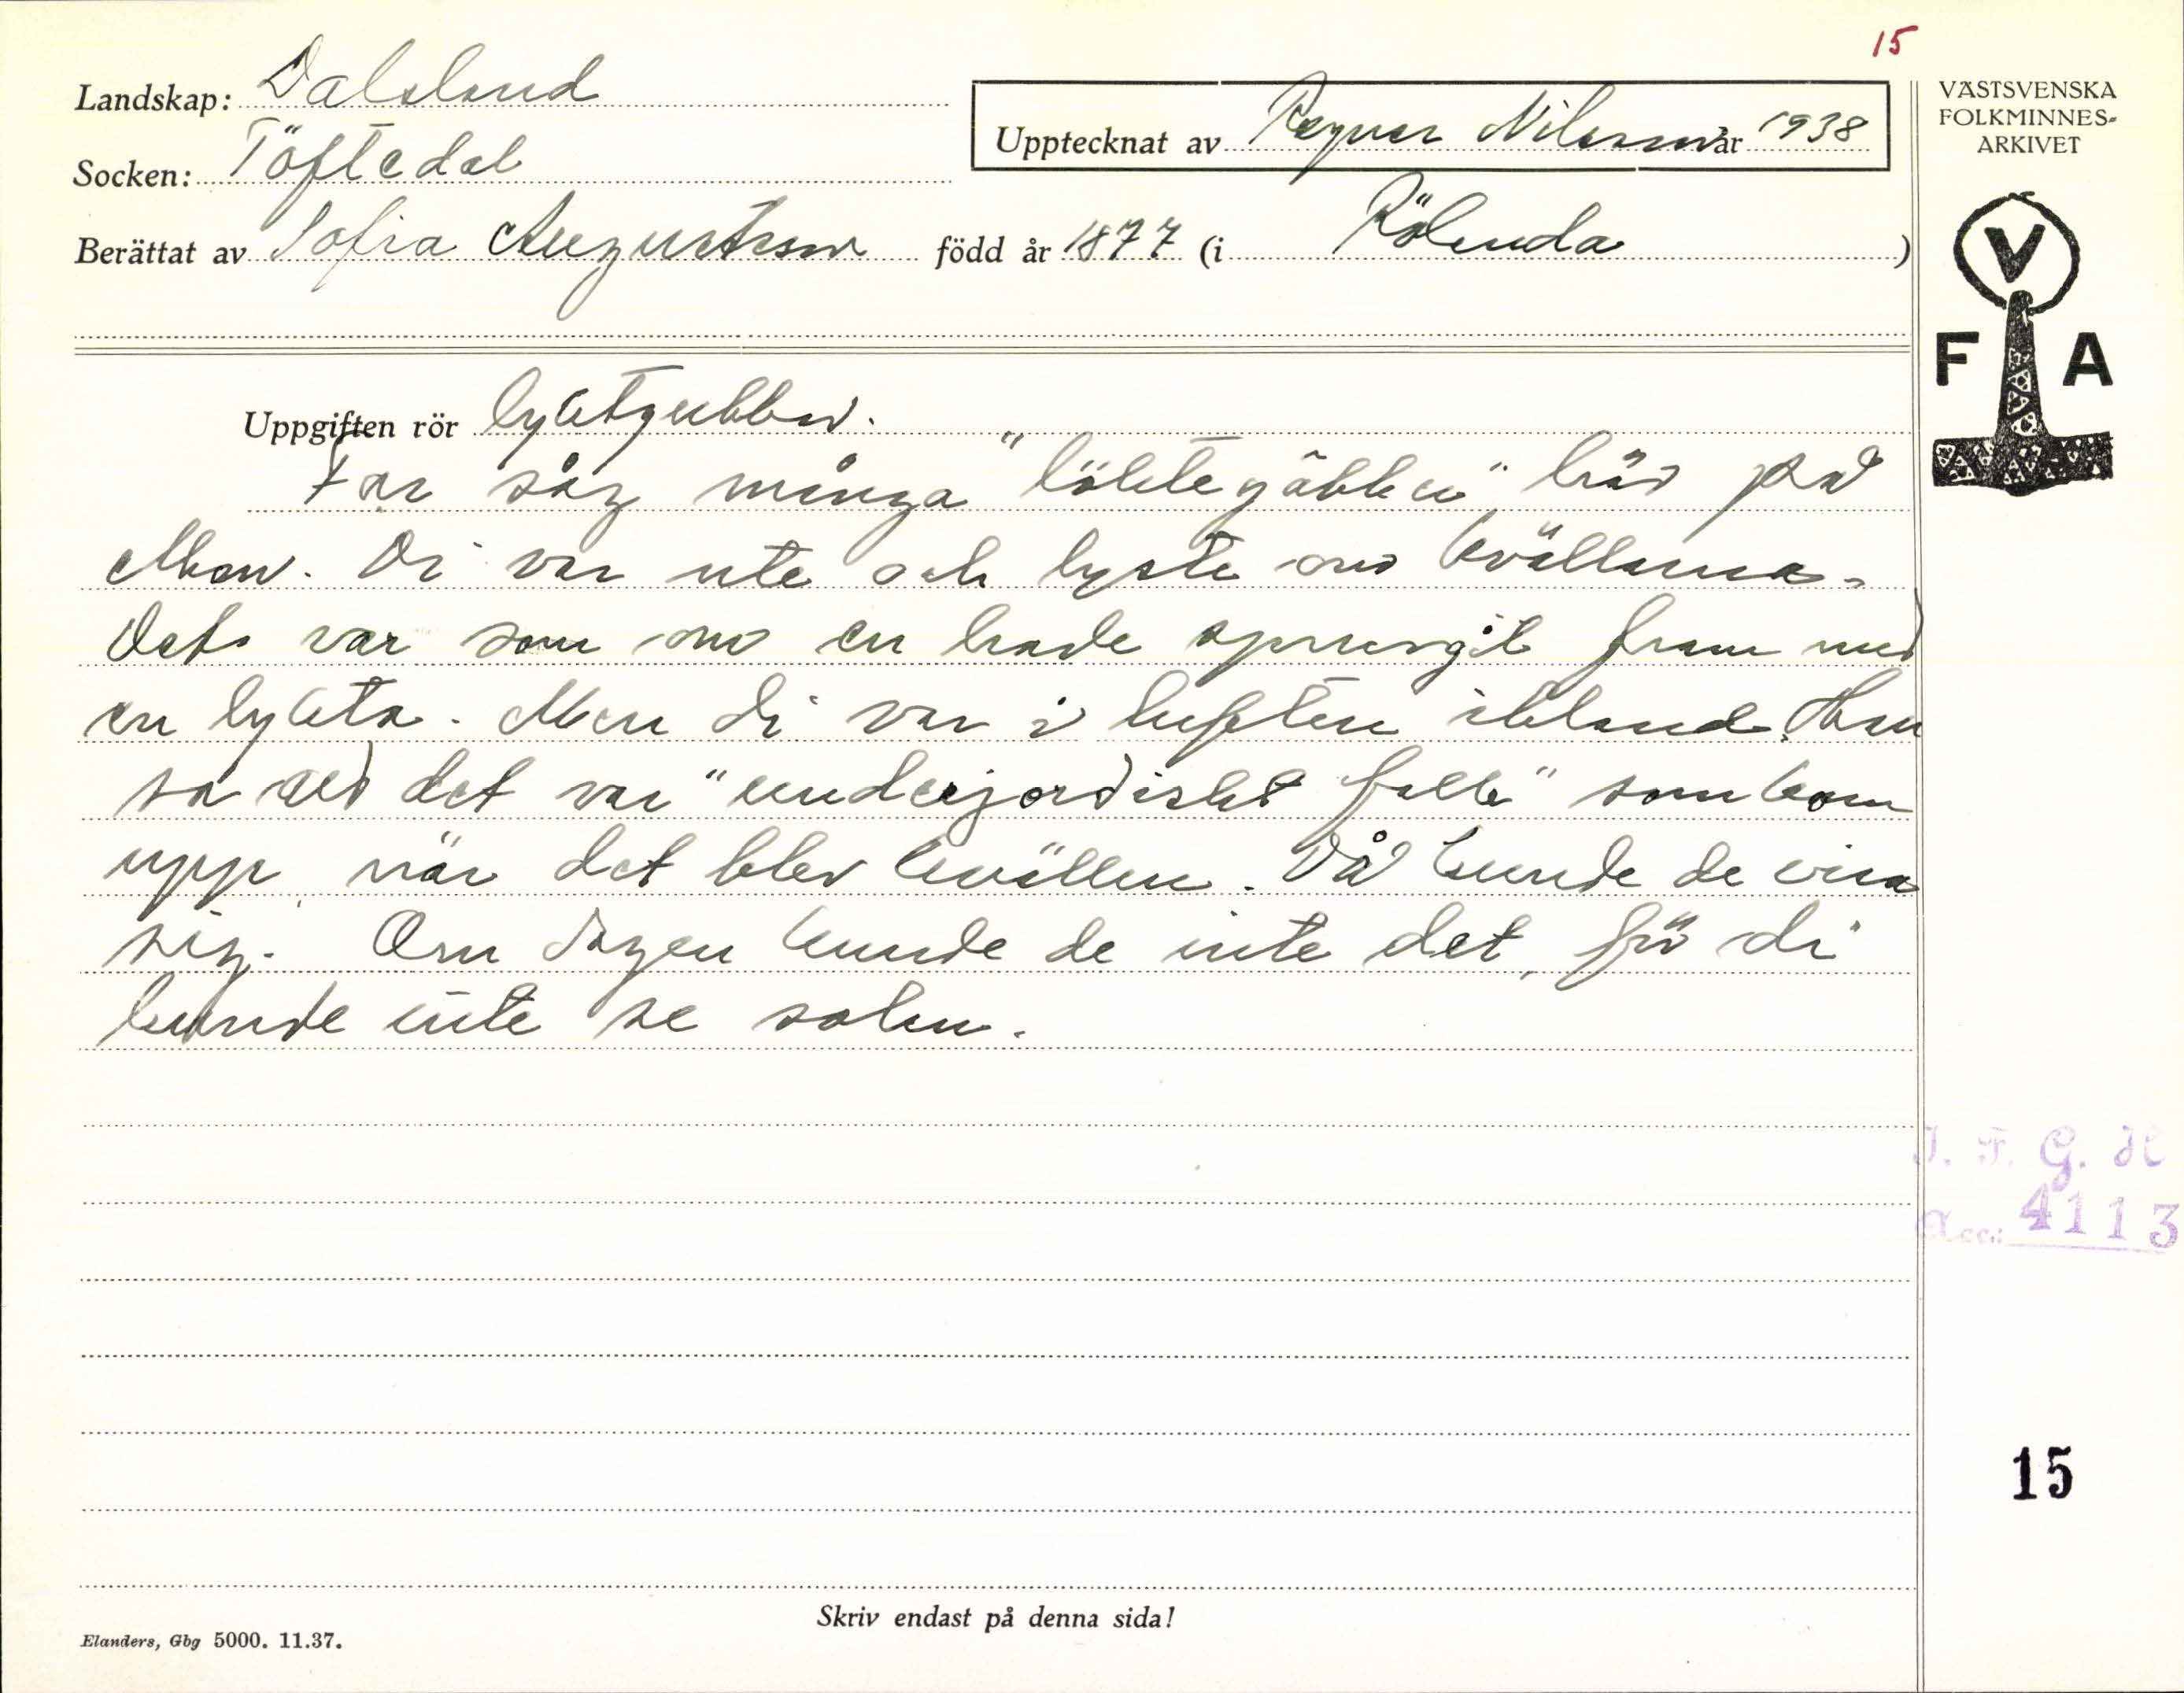 15
Landskap: Dalsland
Upptecknat av Ragnar Nilsson år 1938
VÄSTSVENSKA
FOLKMINNES-
ARKIVET
Socken: Töftedal
Berättat av Sofia Augustsson född år 1877 (i Rölanda)
V
F A
Uppgiften rör lyktgubbar.
Far såg många "löktegåbbar" här på
Mon. Di var ute och lyste om kvällarna.
Det var som om en hade sprungit fram med
en lykta. Men di var i luften ibland. Han
sa att det var "underjordiskt folk" som kom
upp när det blev kvällen. Då kunde de visa
sig. Om dagen kunde de inte det, för di
kunde inte se solen.
I. F. G. H
Acc.: 4113
15
Skriv endast på denna sida!
Elanders, Gbg 5000. 11.37.